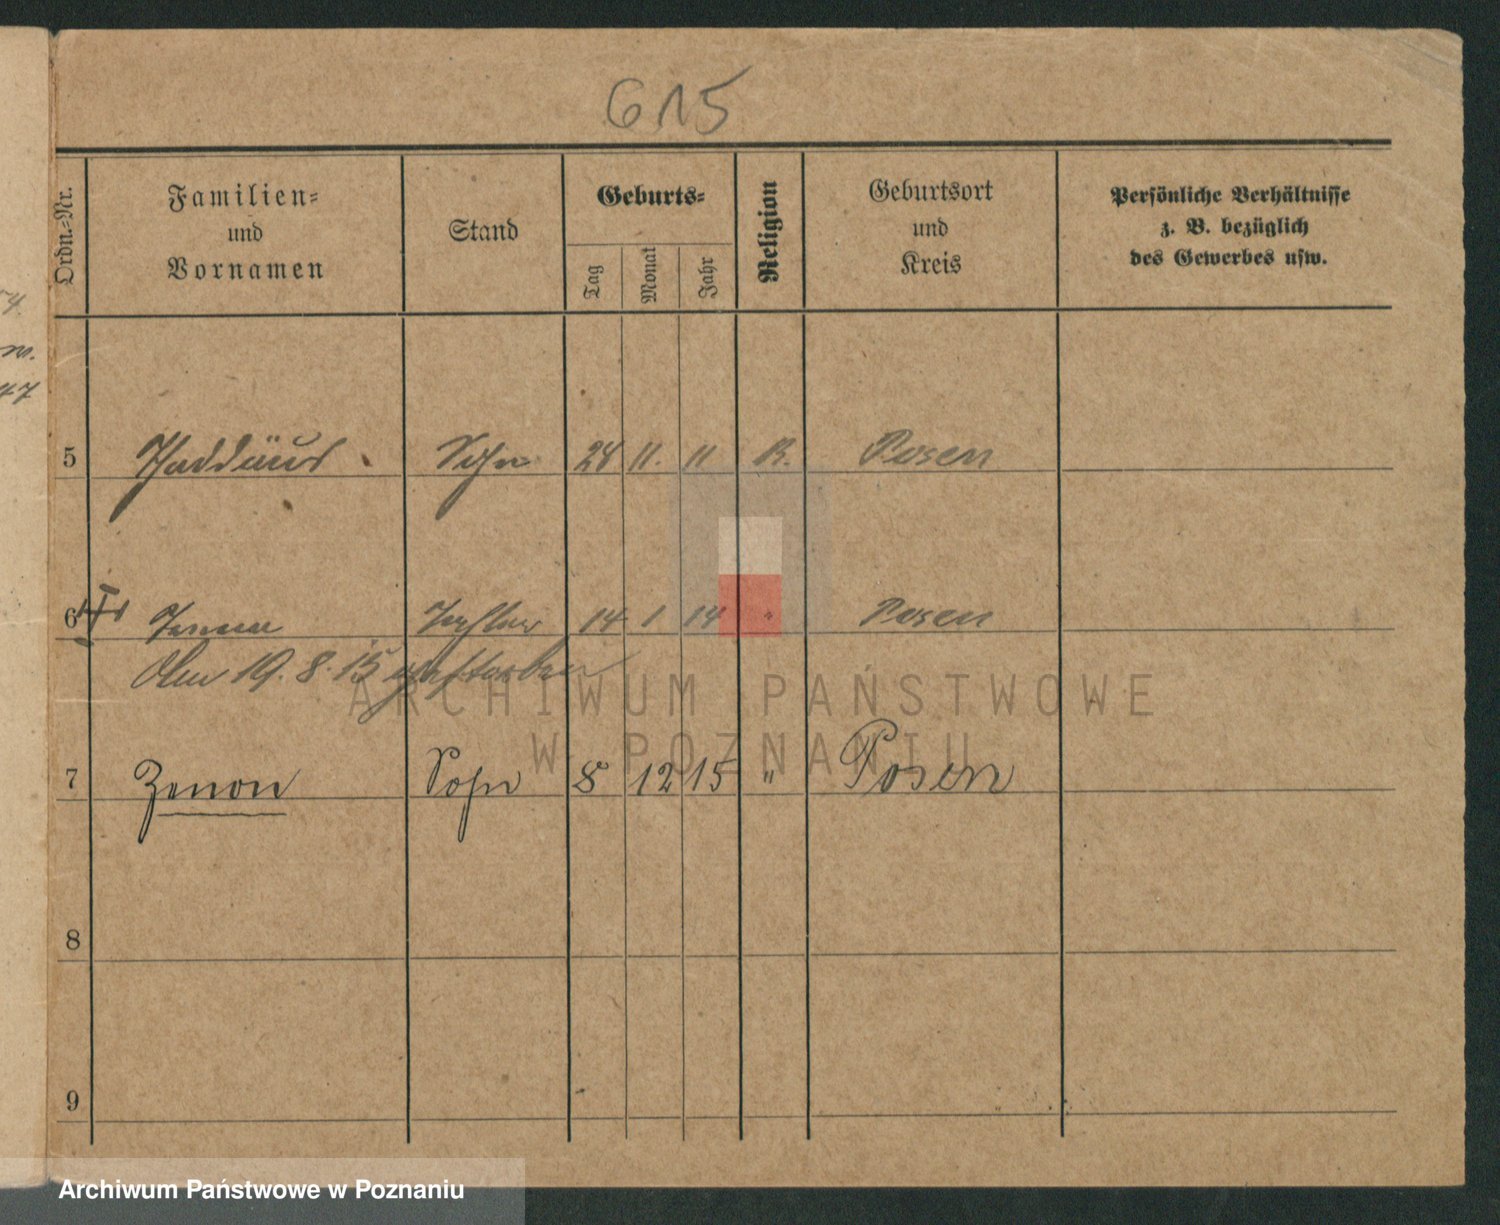 615
Ordn.-Nr.
Familien-
und
Vornamen
Stand
Geburts-
Tag
Monat
Jahr
Religion
Geburtsort
und
Kreis
Persönliche Verhältnisse
z. B. bezüglich
des Gewerbes usw.
47
5 Thaddäus Sohn 24 11. 11 K. Posen
6 Tochter 14 1 14 " Posen
den 19. 8. 15 gestorben
7 Zenon Sohn 8 12 15 " Posen
8
9
ARCHIWUM PAŃSTWOWE
W POZNANIU
Archiwum Państwowe w Poznaniu